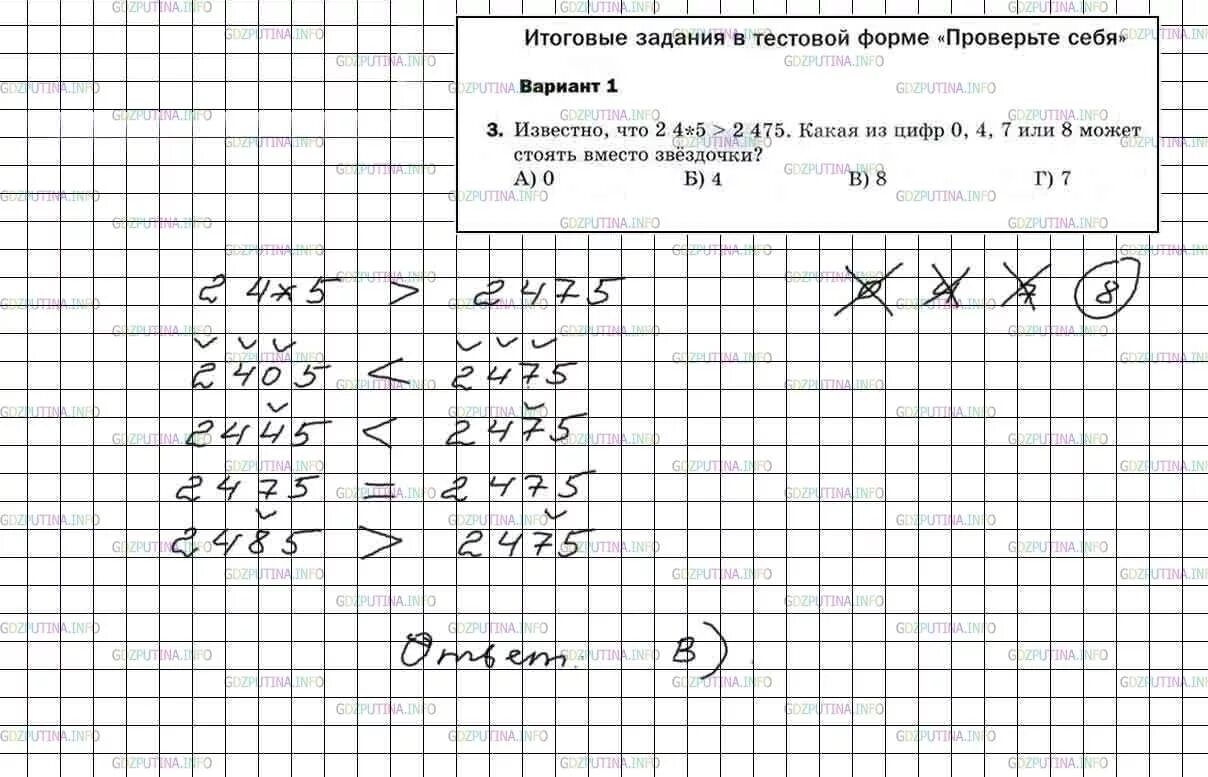 Итоговые задания в тестовой форме «Проверьте себя»
Вариант 1
3. Известно, что 2 4*5 > 2 475. Какая из цифр 0, 4, 7 или 8 может
стоять вместо звёздочки?
А) 0 Б) 4 В) 8 Г) 7
2 4*5 > 2475 0 4 7 8
2405 < 2475
2445 < 2475
2475 = 2475
2485 > 2475
Ответ: В).
GDZPUTINA.INFO